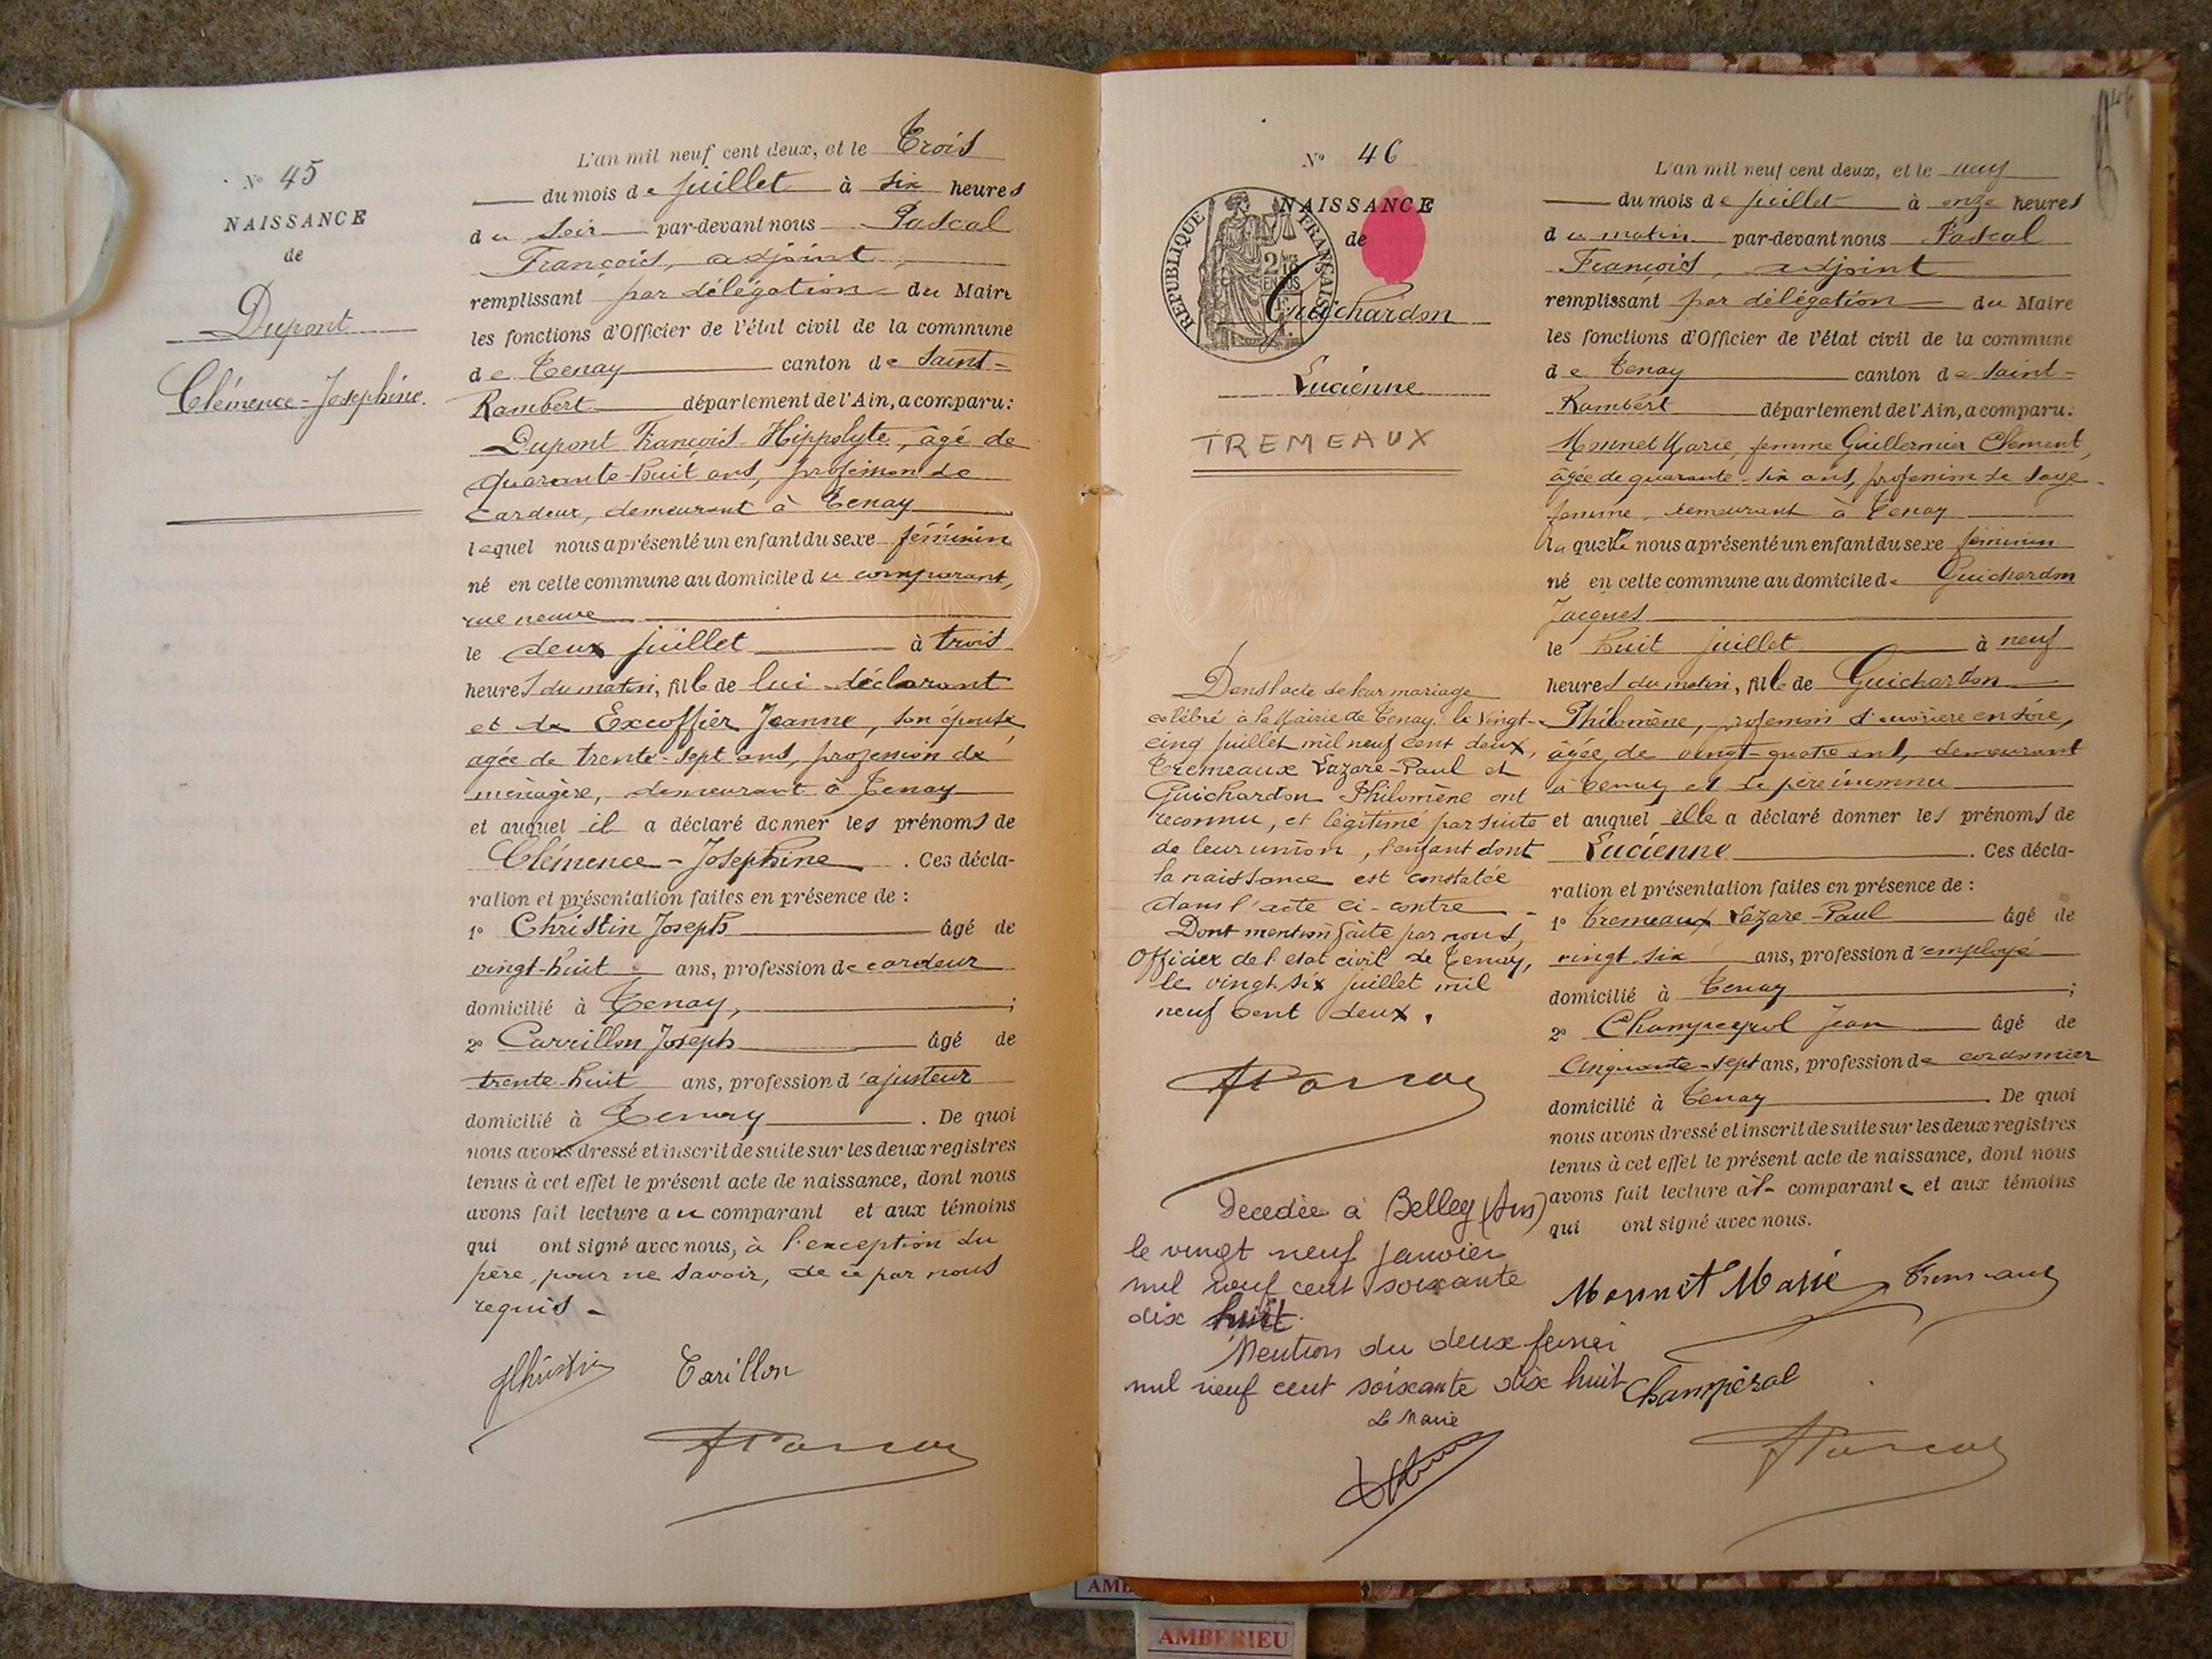 N° 45
NAISSANCE
de
Dupont
Clémence-Joséphine.
L'an mil neuf cent deux, et le Trois
du mois de juillet à six heures
du soir par-devant nous Pascal
François, adjoint,
remplissant par délégation du Maire
les fonctions d'Officier de l'état civil de la commune
de Tenay canton de Saint-
Rambert département de l'Ain, a comparu:
Dupont François-Hippolyte, âgé de
quarante-huit ans, profession de
cardeur, demeurant à Tenay
lequel nous a présenté un enfant du sexe féminin
né en cette commune au domicile du comparant,
rue neuve
le deux juillet à trois
heures du matin, fille de lui déclarant
et de Excoffier Jeanne, son épouse,
agée de trente-sept ans, profession de
ménagère, demeurant à Tenay
et auquel il a déclaré donner les prénoms de
Clémence-Joséphine. Ces décla-
ration et présentation faites en présence de :
1° Christin Joseph âgé de
vingt-huit ans, profession de cardeur
domicilié à Tenay, ;
2° Carrillon Joseph âgé de
trente-huit ans, profession d'ajusteur
domicilié à Tenay. De quoi
nous avons dressé et inscrit de suite sur les deux registres
tenus à cet effet le présent acte de naissance, dont nous
avons fait lecture au comparant et aux témoins
qui ont signé avec nous, à l'exception du
père, pour ne savoir, de ce par nous
requis -
JChristin Carillon
FPascal
N° 46
NAISSANCE
de
REPUBLIQUE FRANÇAISE
Guichardon
Lucienne
TREMEAUX
Dans l'acte de leur mariage
célébré à la Mairie de Tenay, le vingt-
cinq juillet mil neuf cent deux,
Tremeaux Lazare-Paul et
Guichardon Philomène ont
reconnu, et légitimé par suite
de leur union, l'enfant dont
la naissance est constatée
dans l'acte ci-contre -
Dont mention faite par nous,
Officier de l'etat civil de Tenay,
le vingt-six juillet mil
neuf cent deux.
FPascal
Decedée à Belley (Ain)
le vingt neuf janvier
mil neuf cent soixante
dix huit.
Mention du deux fevrier
mil neuf cent soixante dix huit
Le Maire
L'an mil neuf cent deux, et le neuf
du mois de juillet à onze heures
du matin par-devant nous Pascal
François, adjoint
remplissant par délégation du Maire
les fonctions d'Officier de l'état civil de la commune
de Tenay canton de Saint-
Rambert département de l'Ain, a comparu:
Monnet Marie, femme Guillermier Clément,
âgée de quarante-six ans, profession de sage-
femme, demeurant à Tenay
laquelle nous a présenté un enfant du sexe féminin
né en cette commune au domicile de Guichardon
Jacques
le huit juillet à neuf
heures du matin, fille de Guichardon
Philomène, profession d'ouvrière en soie,
âgée de vingt-quatre ans, demeurant
à Tenay et de père inconnu
et auquel elle a déclaré donner les prénoms de
Lucienne. Ces décla-
ration et présentation faites en présence de :
1° Tremeaux Lazare-Paul âgé de
vingt-six ans, profession d'employé
domicilié à Tenay ;
2° Champeyrol Jean âgé de
Cinquante-sept ans, profession de cordonnier
domicilié à Tenay. De quoi
nous avons dressé et inscrit de suite sur les deux registres
tenus à cet effet le présent acte de naissance, dont nous
avons fait lecture à la comparante et aux témoins
qui ont signé avec nous.
Monnet Marie Tremeaux
Champérol
FPascal
AMBERIEU